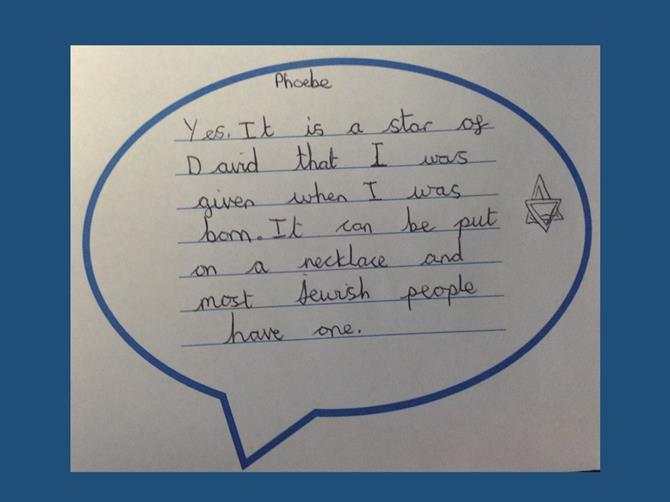 Phoebe
Yes. It is a star of
David that I was
given when I was
born. It can be put
on a necklace and
most Jewish people
have one.